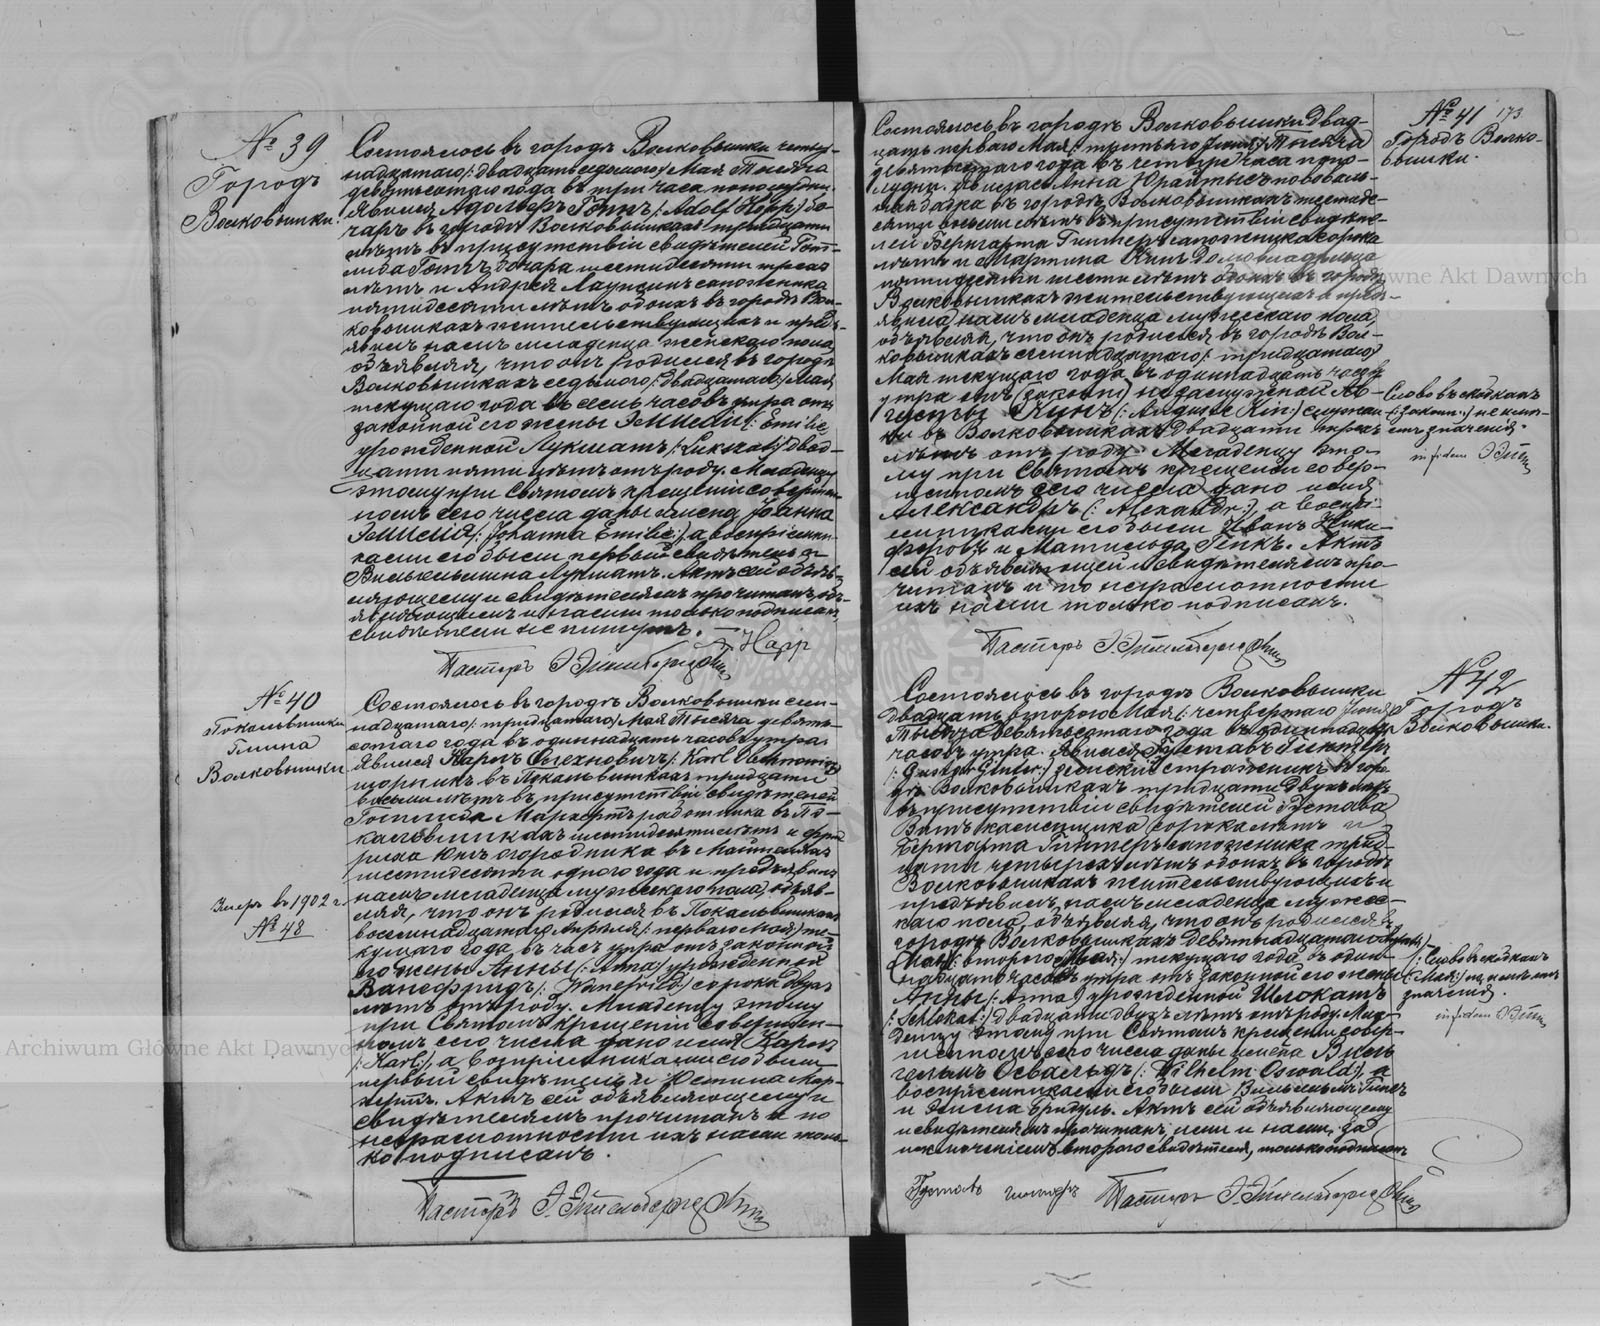 № 39
Городъ
Волковышки.
Состоялось въ городѣ Волковышки четыр-
надцатаго /: двадцать седьмого :/ Мая Тысяча
девятьсотаго года въ три часа пополудни.
Явился Адольфъ Гоппъ /: Adolf Hopp :/ бо-
чаръ въ городѣ Волковышкахъ тридцати
лѣтъ въ присутствіи свидѣтелей Готт-
либа Гоппъ бочара шестидесяти трехъ
лѣтъ и Андрея сапожника
пятидесяти лѣтъ обоихъ въ городѣ Вол-
ковышкахъ жительствующихъ и предъ-
явилъ намъ младенца женскаго пола,
объявляя, что онъ родился въ городѣ
Волковышкахъ седьмого /: двадцатаго :/ Мая
текущаго года въ семь часовъ утра отъ
законной его жены Эмиліи /: Emilie
урожденной Лукшатъ /: Lukszat :/ двад-
цати пяти лѣтъ отъ роду. Младенцу
этому при Святомъ крещеніи совершен-
номъ сего числа даны имена Іоанна
Эмилія /: Johanna Emilie :/, а воспріемни-
ками его были первый свидѣтель и
Вильгельмина Лукшатъ. Актъ сей объяв-
ляющему и свидѣтелямъ прочитанъ, объ-
являющимъ и нами только подписанъ,
свидѣтели не пишутъ.
Пасторъ
№ 40
Покальнишки
Гмина
Волковышки
Состоялось въ городѣ Волковышки сем-
надцатаго /: тридцатаго :/ Мая Тысяча девять-
сотаго года въ одиннадцать часовъ утра.
Явился Карлъ Олехновичъ /: Karl
въ тридцати
восьми лѣтъ въ присутствіи свидѣтелей
Готлиба Маркертъ работника въ По-
шестидесяти лѣтъ и Фрид-
риха огородника въ
шестидесяти одного года и предъявилъ
намъ младенца мужескаго пола, объяв-
ляя, что онъ родился въ
восемнадцатаго Апрѣля /: перваго Мая :/ те-
кущаго года, въ часъ утра отъ законной
его жены Анны /: Anna :/ урожденной
Ванефридъ /: Wanefrid :/ сорока двухъ
лѣтъ отъ роду. Младенцу этому
при Святомъ крещеніи совершен-
номъ сего числа дано имя Карлъ
/: Karl :/, а воспріемниками его были
первый свидѣтель и Юстина Мар-
кертъ. Актъ сей объявляющему и
свидѣтелямъ прочитанъ и по
неграмотности ихъ нами толь-
ко подписанъ.
Умеръ въ 1902 г.
№ 48
Пасторъ
№ 41 173
Городъ Волко-
вышки.
Состоялось въ городѣ Волковышки двад-
цать перваго Мая /: третьяго Іюня :/ Тысяча
девятьсотаго года въ четыре часа попо-
лудни. Явилась Анна повиваль-
ная бабка въ городѣ Волковышкахъ шестиде-
сяти восьми лѣтъ въ присутствіи свидѣте-
лей Бернгарта Гинтеръ сапожника сорока
лѣтъ и Мартина Кинъ домовладѣльца
пятидесяти шести лѣтъ обоихъ въ городѣ
Волковышкахъ жительствующихъ и предъ-
явила намъ младенца мужескаго пола,
объявляя, что онъ родился въ городѣ Вол-
ковышкахъ семнадцатаго /: тридцатаго :/
Мая текущаго года въ одиннадцать часовъ
утра отъ (законн) незамужней Ав-
густы Кинъ /: Auguste Kin :/ служан-
ки въ Волковышкахъ двадцати трехъ
лѣтъ отъ роду. Младенцу это-
му при Святомъ крещеніи совер-
шенномъ сего числа дано имя
Александръ /: Alexandr :/, а воспрі-
емниками его были Иванъ Ники-
форовъ и Матильда Генкъ. Актъ
сей объявляющей и свидѣтелямъ про-
читанъ и по неграмотности
ихъ нами только подписанъ.
Слово въ скобкахъ
/: законн :/ не имѣ-
етъ значенія.
in fidem
Пасторъ
№ 42
Городъ
Волковышки.
Состоялось въ городѣ Волковышки
двадцать второго Мая /: четвертаго Іюня :/
Тысяча девятьсотаго года въ одиннадцать
часовъ утра. Явился Густавъ Гинтеръ
/: Gustav Ginter :/ земскій стражникъ въ горо-
дѣ Волковышкахъ тридцати двухъ лѣтъ
въ присутствіи свидѣтелей Густава
каменщика сорока лѣтъ и
Бернгарта Гинтеръ сапожника трид-
цати четырехъ лѣтъ обоихъ въ городѣ
Волковышкахъ жительствующихъ и
предъявилъ намъ младенца мужес-
каго пола, объявляя, что онъ родился въ
городѣ Волковышкахъ девятнадцатаго Апрѣля
(Мая) /: второго Мая :/ текущаго года въ один-
надцать часовъ утра отъ законной его жены
Анны /: Anna :/ урожденной Шлокатъ
/: Schlokat :/ двадцати двухъ лѣтъ отъ роду. Мла-
денцу этому при Святомъ крещеніи совер-
шенномъ сего числа даны имена Виль-
гельмъ Освальдъ /: Wilhelm Oswald :/, а
воспріемниками его были Вильгельмъ
и Эмма Бридуль. Актъ сей объявляющему
и свидѣтелямъ прочитанъ, ими и нами, за
исключеніемъ второго свидѣтеля, только подписанъ
/: Слово въ скобкахъ
/: Мая :/ не имѣетъ
значенія.
in fidem
Густавъ Гинтеръ Пасторъ
Archiwum Główne Akt Dawnych
Główne Akt Dawnych